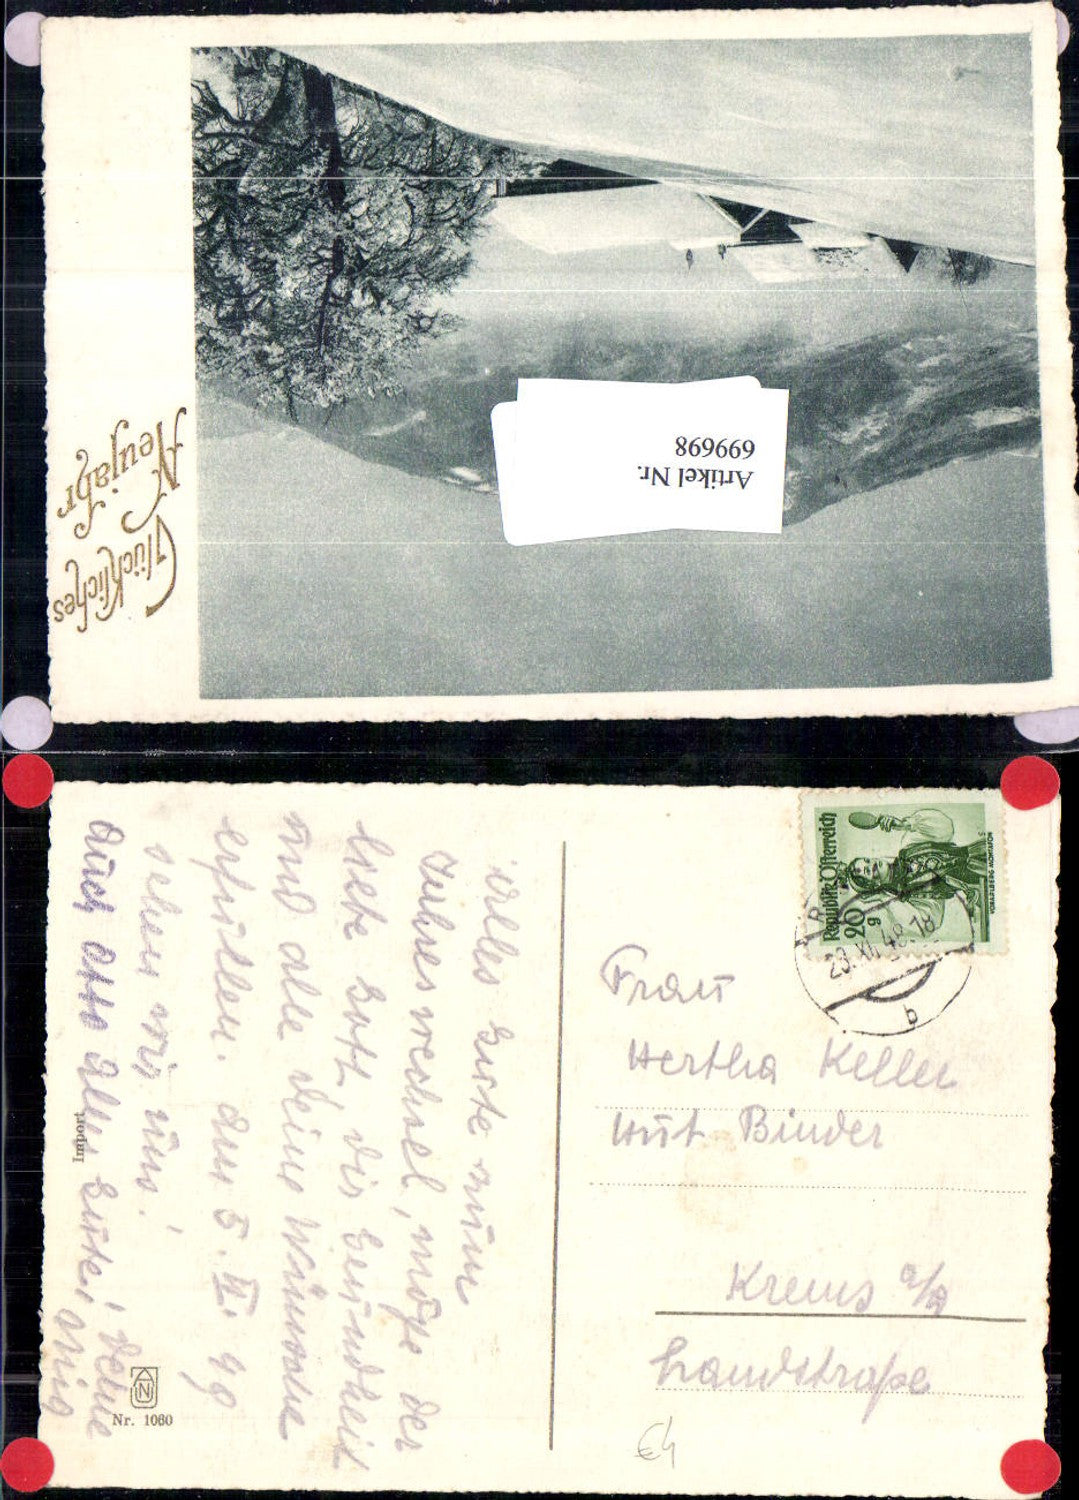 Glückliches
Neujahr
Artikel Nr.
699698
Alles Gute zum
Jahreswechsel, möge der
liebe Gott, dir Gesundheit
und alle deine Wünsche
erfüllen. Am 5. II. 49
sehen wir uns!
Auch Otto alles Gute! deine
Import
Nr. 1060
Republik Österreich
20 g
VORARLBERG MONTAFON
23. XII. 48. 18
b
Frau
Hertha Keller
Hut Binder
Krems a/D
Landstraße
€4